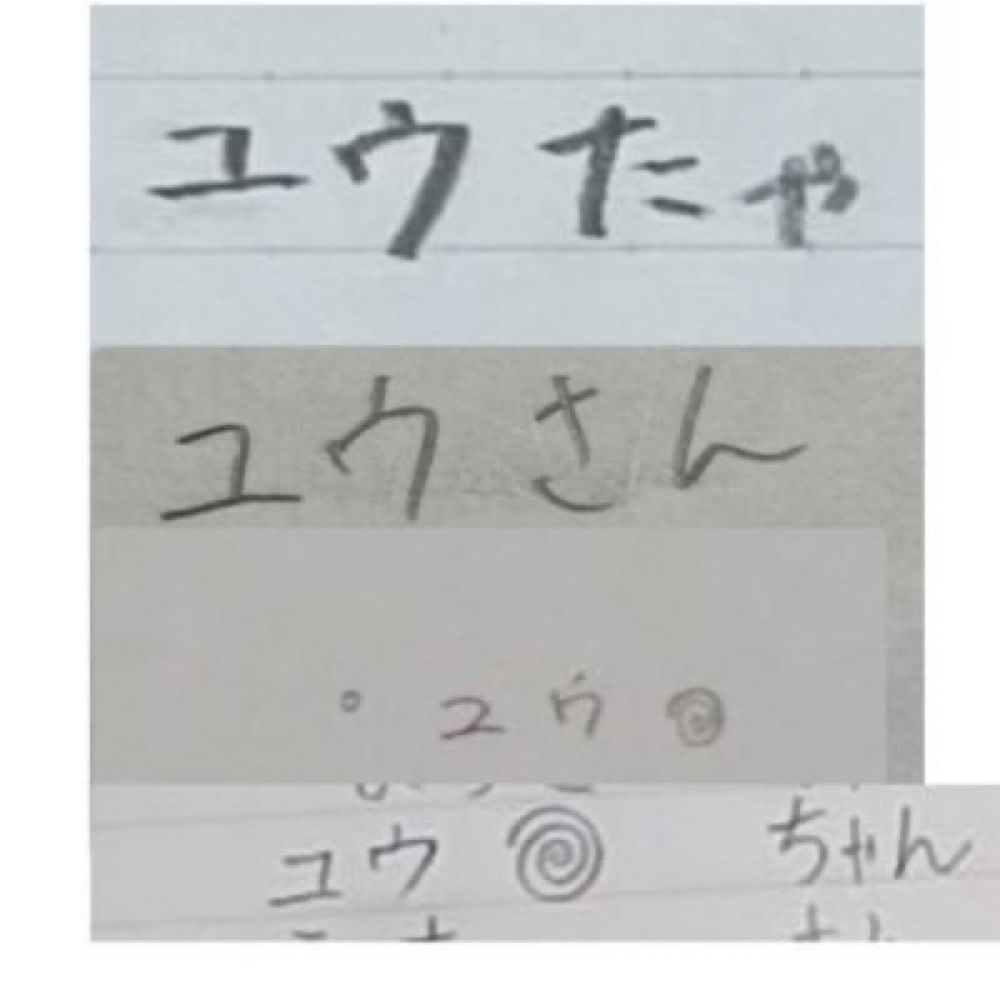 ユウたや
ユウさん
。ユウ🌀
ユウ🌀 ちゃん